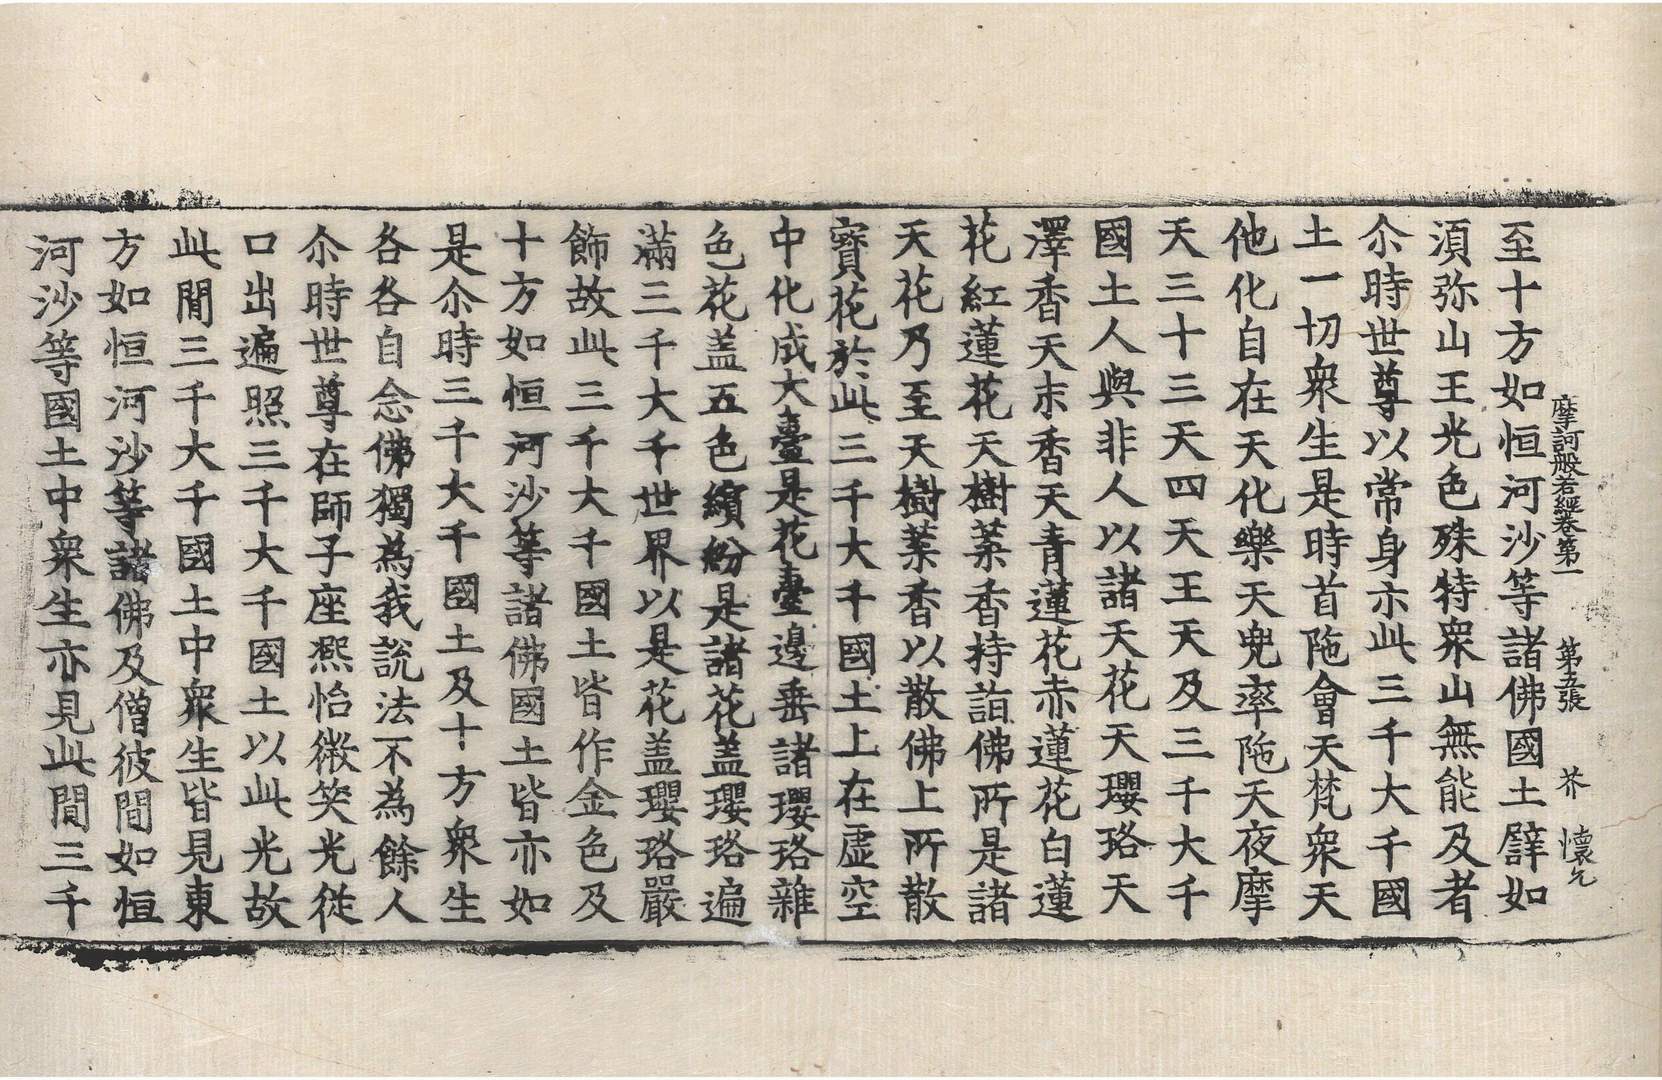 摩訶般若經卷第一　第五張　芥　懷乞
至十方如恒河沙等諸佛國土譬如
須弥山王光色殊特衆山無能及者
尒時世尊以常身示此三千大千國
土一切衆生是時首陁會天梵衆天
他化自在天化樂天兜率陁天夜摩
天三十三天四天王天及三千大千
國土人與非人以諸天花天瓔珞天
澤香天末香天青蓮花赤蓮花白蓮
花紅蓮花天樹葉香持詣佛所是諸
天花乃至天樹葉香以散佛上所散
寶花於此三千大千國土上在虛空
中化成大臺是花臺邊垂諸瓔珞雜
色花盖五色繽紛是諸花盖瓔珞遍
滿三千大千世界以是花盖瓔珞嚴
飾故此三千大千國土皆作金色及
十方如恒河沙等諸佛國土皆亦如
是尒時三千大千國土及十方衆生
各各自念佛獨為我說法不為餘人
尒時世尊在師子座熈怡微笑光從
口出遍照三千大千國土以此光故
此間三千大千國土中衆生皆見東
方如恒河沙等諸佛及僧彼間如恒
河沙等國土中衆生亦見此間三千